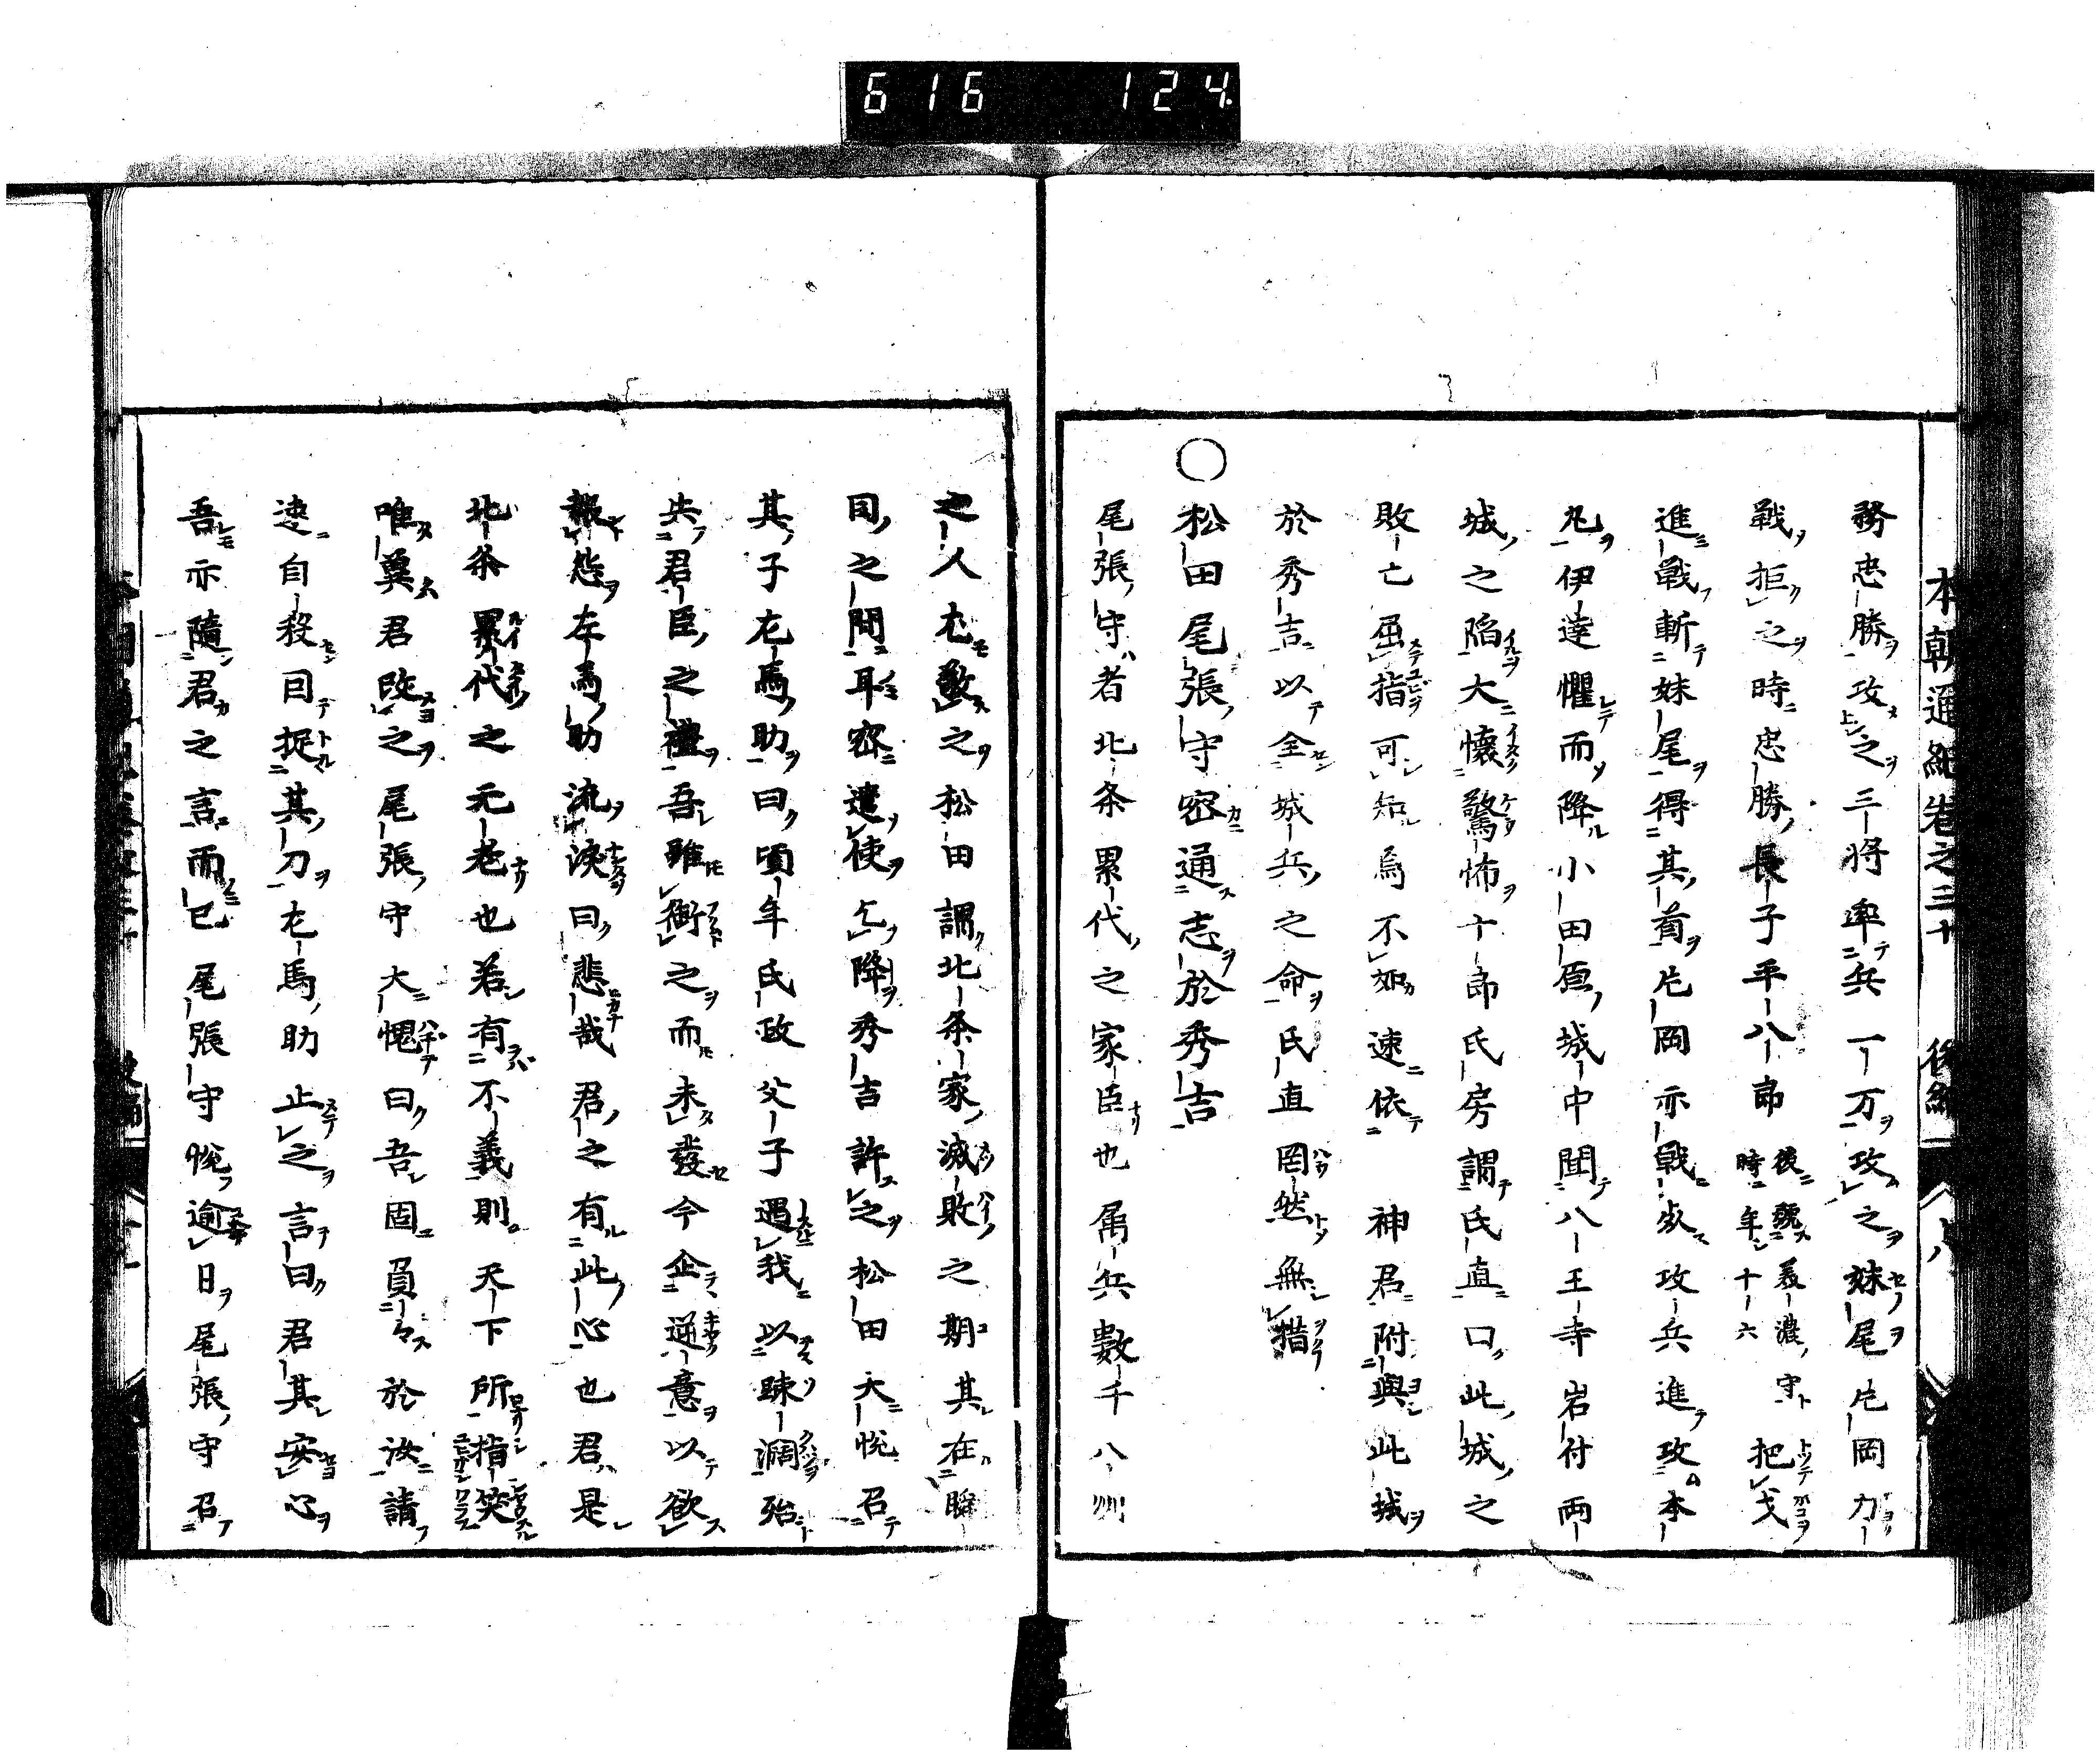 616 124
本朝通紀卷之三十 後編 八
務忠勝攻之三将率兵一万攻之妹尾片岡力
戦拒之時忠勝長子平八郎後號美濃守時年十六把戈
進戦斬妹尾得其首片岡亦戦死攻兵進攻本
丸伊達懼而降小田原城中聞八王寺岩付両
城之陥大懐驚怖十郎氏房謂氏直曰此城之
敗亡屈指可知焉不如速依 神君附與此城
於秀吉以全城兵之命氏直罔然無措
○松田尾張守密通志於秀吉
尾張守者北条累代之家臣也属兵數千八州
之人尤敬之松田謂北条家滅敗之期其在瞬
目之間耳密遣使乞降秀吉許之松田大悦召
其子左馬助曰頃年氏政父子遇我以疎濶殆
失君臣之禮吾雖銜之而未發今企逆意以欲
報怨左馬助流涙曰悲哉君之有此心也君是
北条累代之元老也若有不義則天下所指笑
唯冀君改之尾張守大愧曰吾固負々於汝請
速自殺因捉其刀左馬助止之言曰君其安心
吾亦隨君之言而已尾張守悦逾日尾張守召